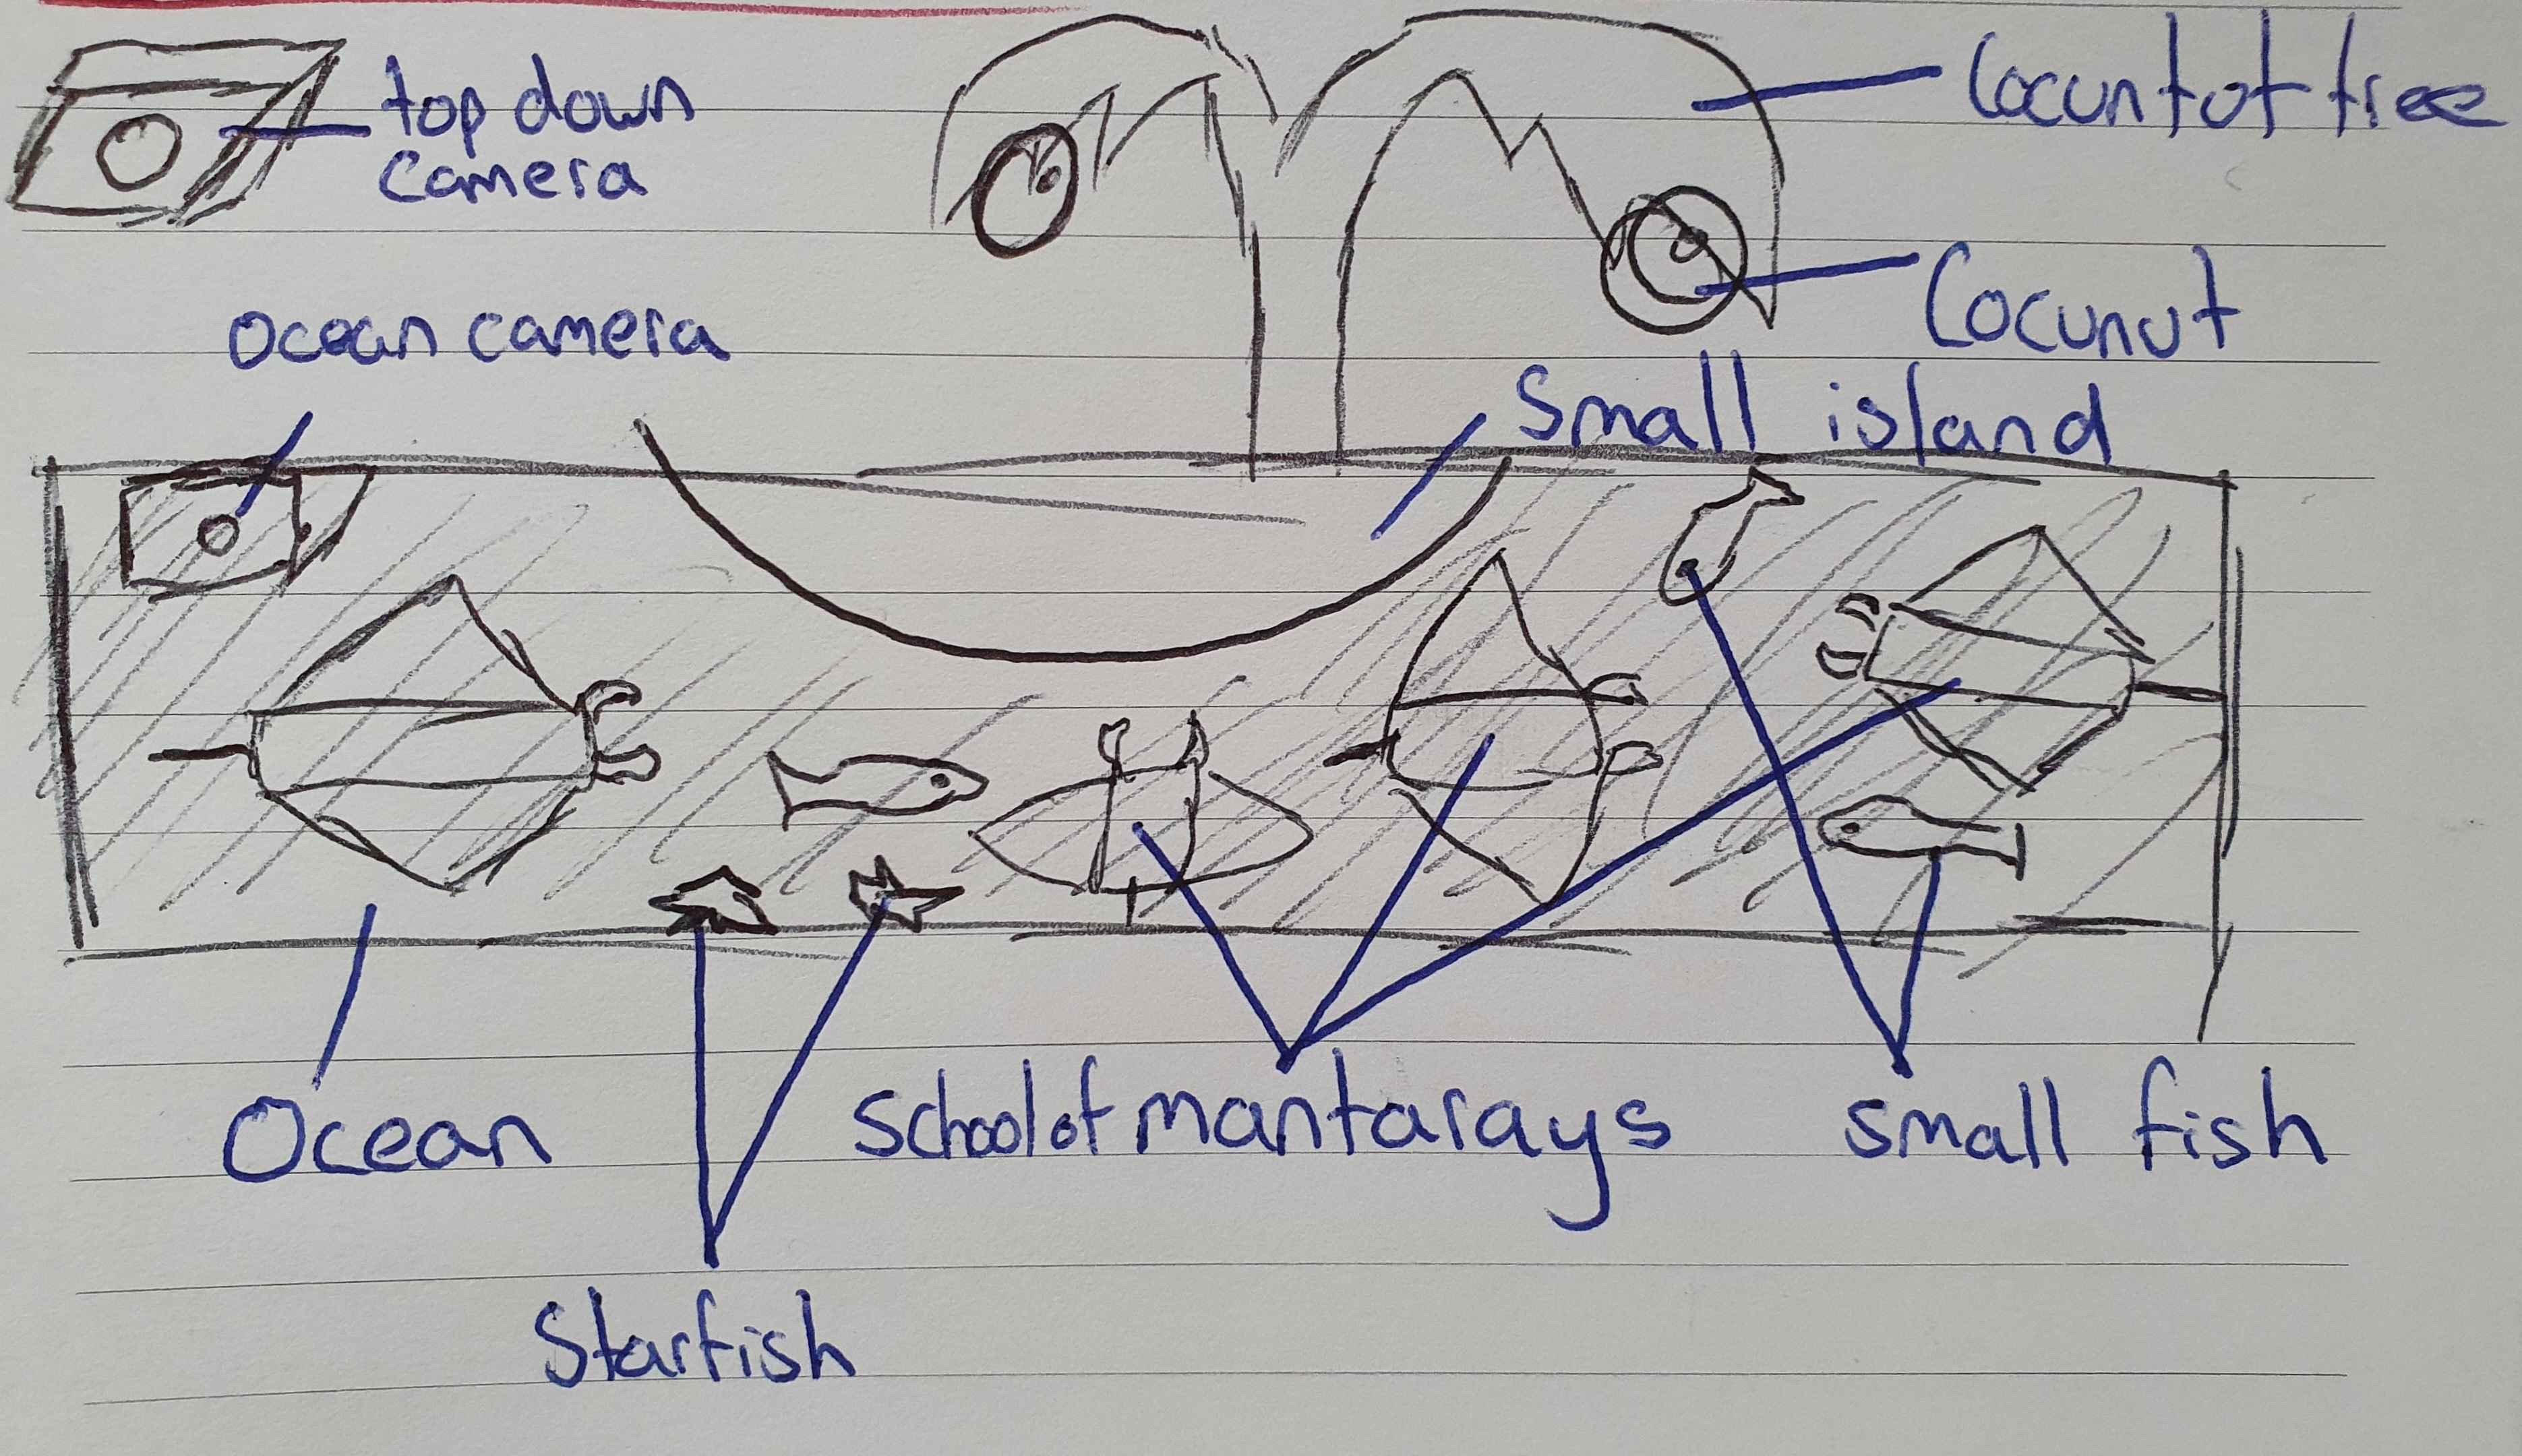 top down
camera
Cocuntot tree
Ocean camera
Cocunut
Small island
Ocean
School of mantarays
small fish
Starfish